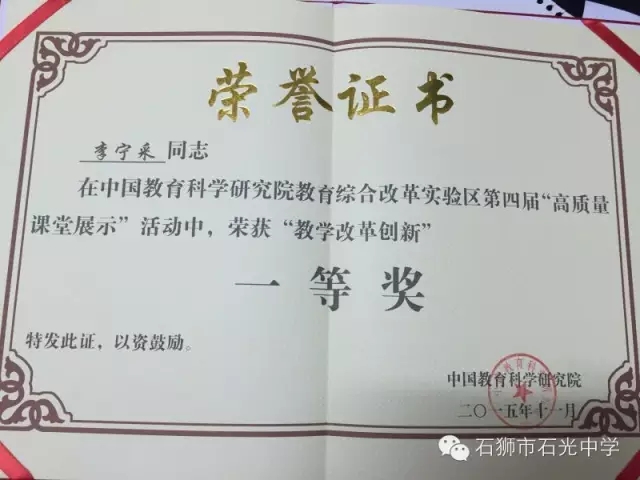 荣誉证书
李宁采 同志
在中国教育科学研究院教育综合改革实验区第四届“高质量
课堂展示”活动中，荣获“教学改革创新”
一等奖
特发此证，以资鼓励。
中国教育科学研究院
二〇一五年十一月
石狮市石光中学